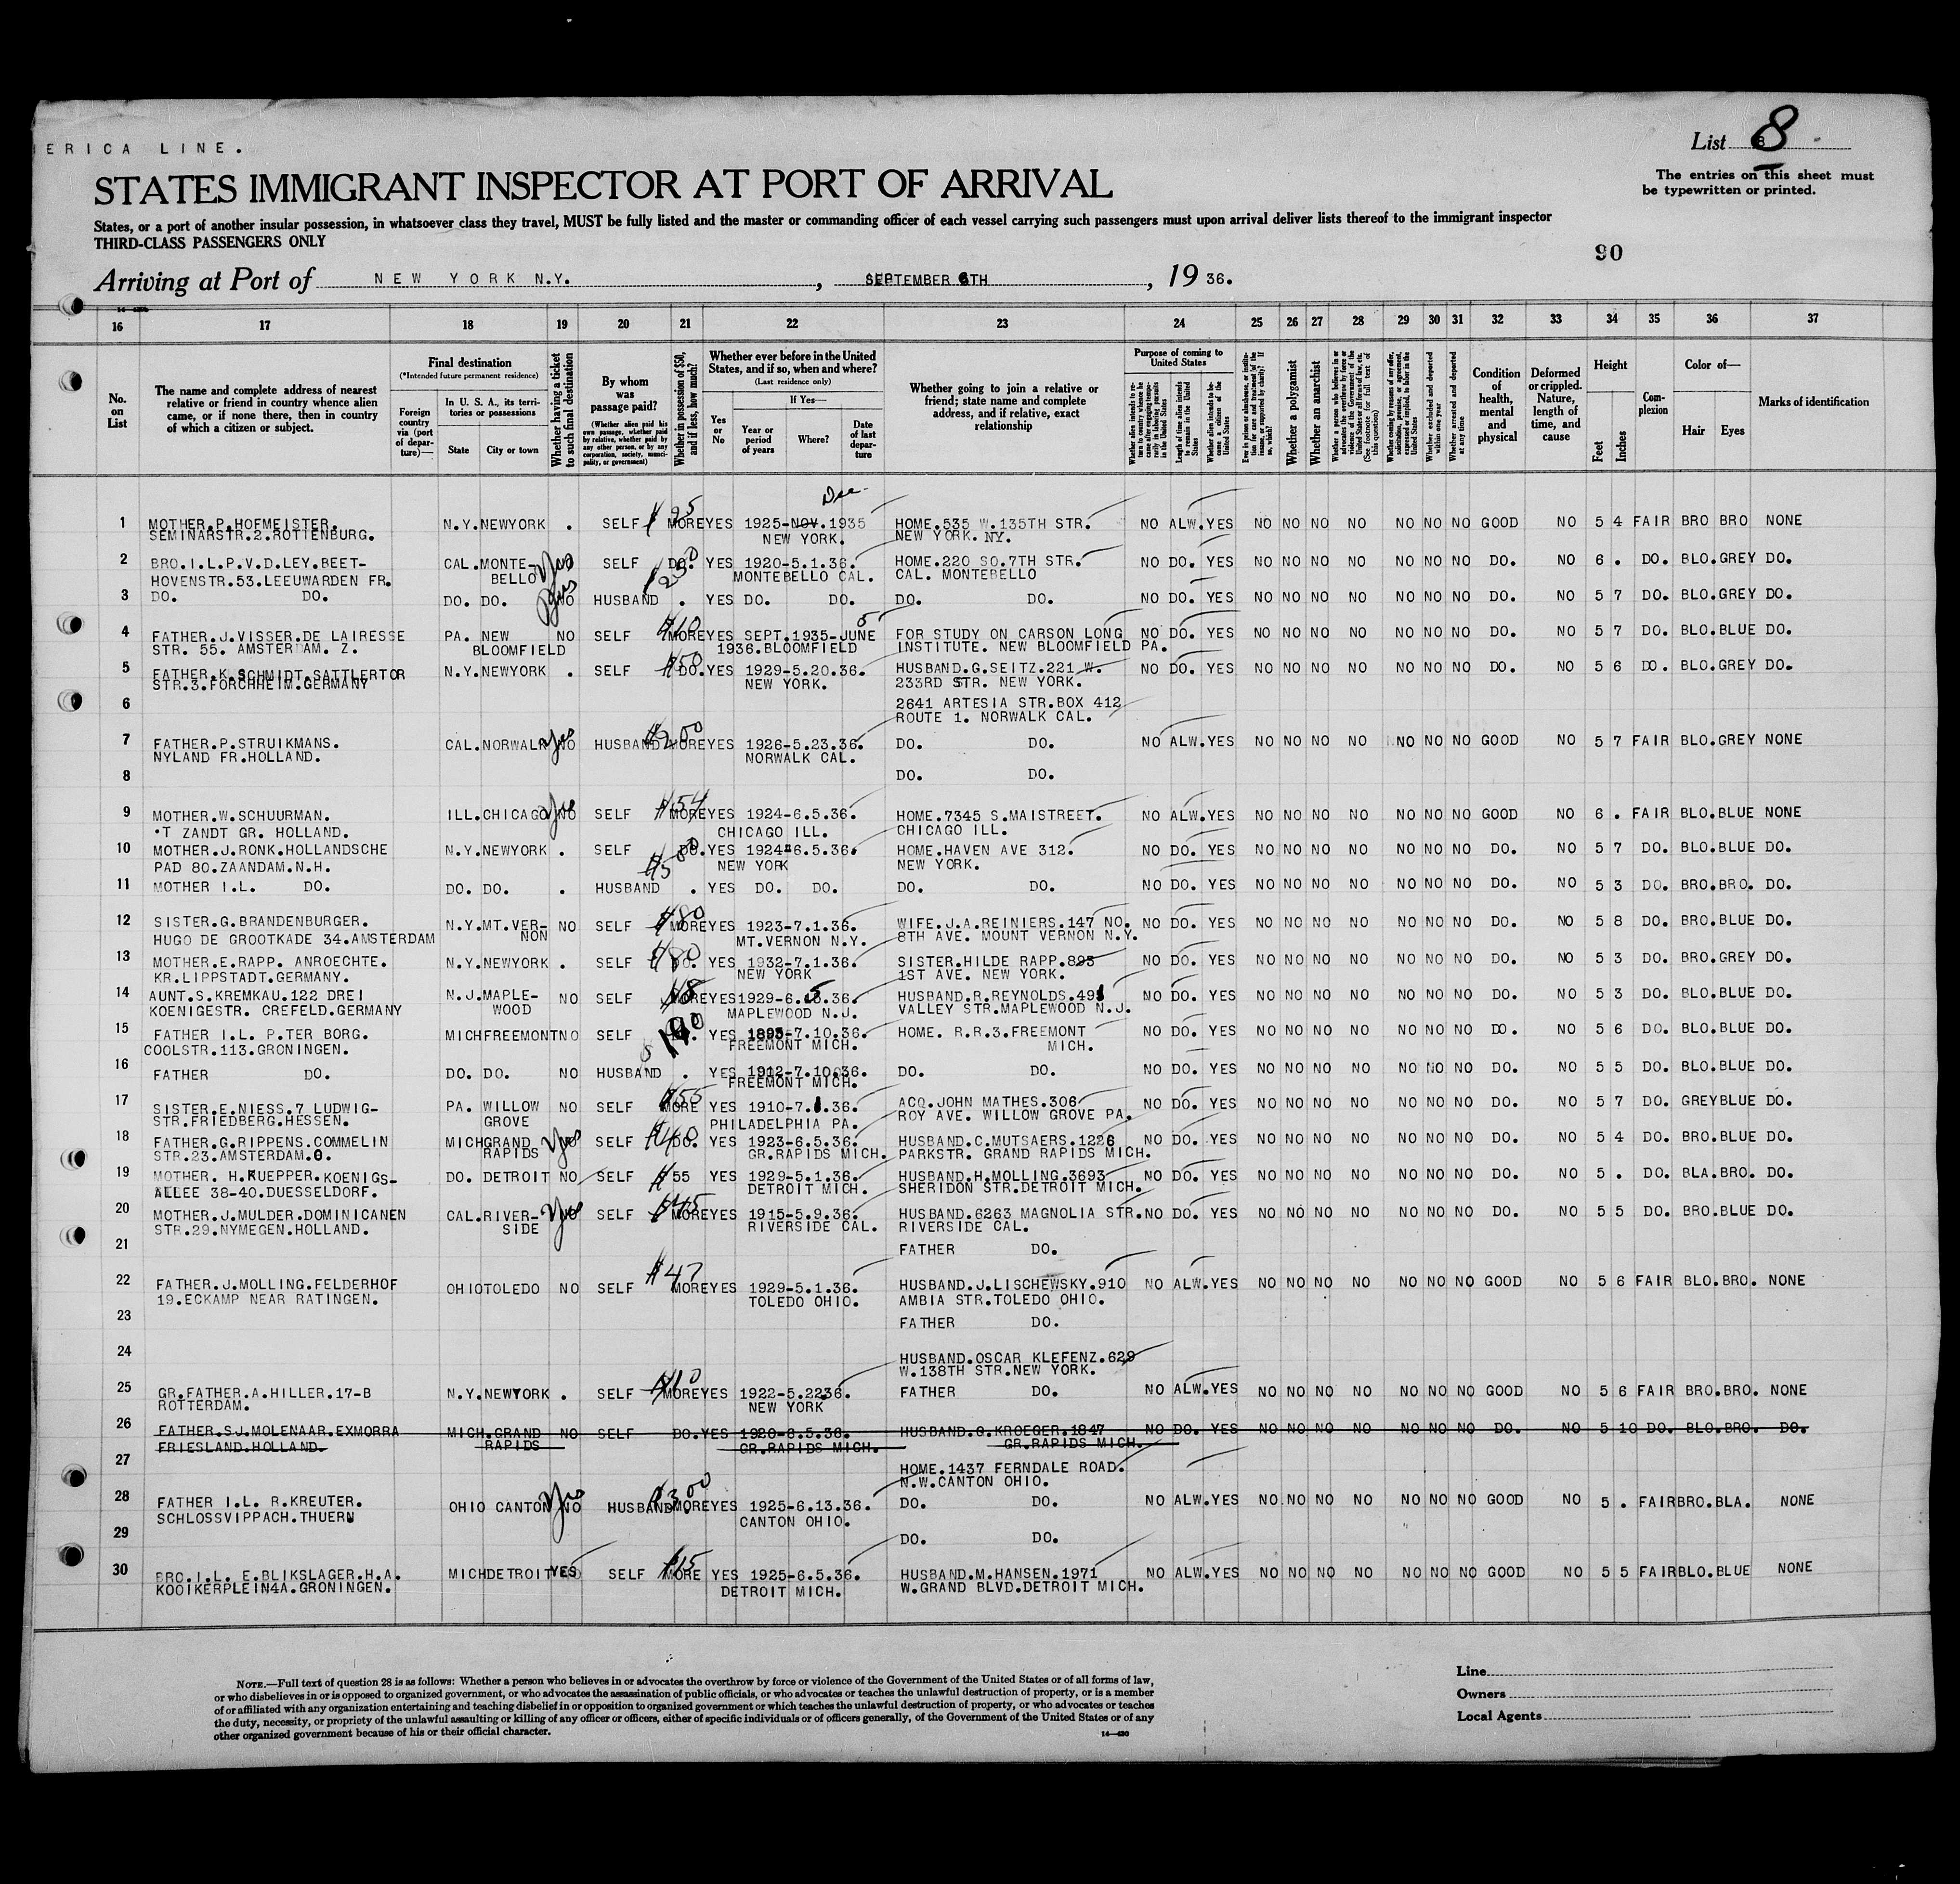 ERICA LINE.
List 8
STATES IMMIGRANT INSPECTOR AT PORT OF ARRIVAL
The entries on this sheet must
be typewritten or printed.
States, or a port of another insular possession, in whatsoever class they travel, MUST be fully listed and the master or commanding officer of each vessel carrying such passengers must upon arrival deliver lists thereof to the immigrant inspector
THIRD-CLASS PASSENGERS ONLY
90
Arriving at Port of NEW YORK N.Y. , SEPTEMBER 6TH , 19 36.
16 17 18 19 20 21 22 23 24 25 26 27 28 29 30 31 32 33 34 35 36 37
No. on List
The name and complete address of nearest relative or friend in country whence alien came, or if none there, then in country of which a citizen or subject.
Final destination
(*Intended future permanent residence)
Foreign country via (port of departure)—
In U. S. A., its territories or possessions
State City or town
Whether having a ticket to such final destination
By whom was passage paid?
(Whether alien paid his own passage, whether paid by relative, whether paid by any other person, or by any corporation, society, municipality, or government)
Whether in possession of $50, and if less, how much?
Whether ever before in the United States, and if so, when and where?
(Last residence only)
If Yes—
Yes or No
Year or period of years
Where?
Date of last departure
Whether going to join a relative or friend; state name and complete address, and if relative, exact relationship
Purpose of coming to United States
Whether a polygamist
Whether an anarchist
Condition of health, mental and physical
Deformed or crippled. Nature, length of time, and cause
Height
Feet Inches
Complexion
Color of—
Hair Eyes
Marks of identification
Dec.
1 MOTHER.P.HOFMEISTER. N.Y.NEWYORK . SELF $ 95 MORE YES 1925-NOV.1935 HOME.535 W.135TH STR. NO ALW.YES NO NO NO NO NO NO NO GOOD NO 5 4 FAIR BRO BRO NONE
SEMINARSTR.2.ROTTENBURG. NEW YORK. NEW YORK. NY.
2 BRO.I.L.P.V.D.LEY.BEET- CAL.MONTE- Yes SELF DO. YES 1920-5.1.36. HOME.220 SO.7TH STR. NO DO. YES NO NO NO NO NO NO NO DO. NO 6 . DO. BLO.GREY DO.
HOVENSTR.53.LEEUWARDEN FR. BELLO $250 MONTEBELLO CAL. CAL. MONTEBELLO
3 DO. DO. DO. DO. Yes NO HUSBAND . YES DO. DO. DO. DO. NO DO. YES NO NO NO NO NO NO NO DO. NO 5 7 DO. BLO.GREY DO.
4 FATHER.J.VISSER.DE LAIRESSE PA. NEW NO SELF $10 MORE YES SEPT.1935-JUNE 5 FOR STUDY ON CARSON LONG NO DO. YES NO NO NO NO NO NO NO DO. NO 5 7 DO. BLO.BLUE DO.
STR. 55. AMSTERDAM. Z. BLOOMFIELD 1936.BLOOMFIELD INSTITUTE. NEW BLOOMFIELD PA.
5 FATHER.K.SCHMIDT.SATTLERTOR N.Y.NEWYORK . SELF $50 DO. YES 1929-5.20.36. HUSBAND.G.SEITZ.221 W. NO DO. YES NO NO NO NO NO NO NO DO. NO 5 6 DO. BLO.GREY DO.
STR.3.FORCHHEIM.GERMANY NEW YORK. 233RD STR. NEW YORK.
6 2641 ARTESIA STR.BOX 412
ROUTE 1. NORWALK CAL.
7 FATHER.P.STRUIKMANS. CAL.NORWALK Yes NO HUSBAND $200 MORE YES 1926-5.23.36. DO. DO. NO ALW.YES NO NO NO NO NO NO NO GOOD NO 5 7 FAIR BLO.GREY NONE
NYLAND FR.HOLLAND. NORWALK CAL.
8 DO. DO.
9 MOTHER.W.SCHUURMAN. ILL.CHICAGO Yes NO SELF $54 MORE YES 1924-6.5.36. HOME.7345 S.MAISTREET. NO ALW.YES NO NO NO NO NO NO NO GOOD NO 6 . FAIR BLO.BLUE NONE
'T ZANDT GR. HOLLAND. CHICAGO ILL. CHICAGO ILL.
10 MOTHER.J.RONK.HOLLANDSCHE N.Y.NEWYORK . SELF DO. YES 1924-6.5.36. HOME.HAVEN AVE 312. NO DO. YES NO NO NO NO NO NO NO DO. NO 5 7 DO. BLO.BLUE DO.
PAD 80.ZAANDAM.N.H. $500 NEW YORK NEW YORK.
11 MOTHER I.L. DO. DO. DO. . HUSBAND . YES DO. DO. DO. DO. NO DO. YES NO NO NO NO NO NO NO DO. NO 5 3 DO. BRO.BRO. DO.
12 SISTER.G.BRANDENBURGER. N.Y.MT.VER- NO SELF $80 MORE YES 1923-7.1.36. WIFE.J.A.REINIERS.147 NO. NO DO. YES NO NO NO NO NO NO NO DO. NO 5 8 DO. BRO.BLUE DO.
HUGO DE GROOTKADE 34.AMSTERDAM NON MT.VERNON N.Y. 8TH AVE. MOUNT VERNON N.Y.
13 MOTHER.E.RAPP. ANROECHTE. N.Y.NEWYORK . SELF $80 DO. YES 1932-7.1.36. SISTER.HILDE RAPP.893 NO DO. YES NO NO NO NO NO NO NO DO. NO 5 3 DO. BRO.GREY DO.
KR.LIPPSTADT.GERMANY. NEW YORK 1ST AVE. NEW YORK.
14 AUNT.S.KREMKAU.122 DREI N.J.MAPLE- NO SELF MORE YES 1929-6. .36. HUSBAND.R.REYNOLDS.491 NO DO. YES NO NO NO NO NO NO NO DO. NO 5 3 DO. BLO.BLUE DO.
KOENIGESTR. CREFELD.GERMANY WOOD MAPLEWOOD N.J. VALLEY STR.MAPLEWOOD N.J.
15 FATHER I.L. P.TER BORG. MICH FREEMONT NO SELF YES 1893-7.10.36. HOME. R.R.3.FREEMONT NO DO. YES NO NO NO NO NO NO NO DO. NO 5 6 DO. BLO.BLUE DO.
COOLSTR.113.GRONINGEN. FREEMONT MICH. MICH.
16 FATHER DO. DO. DO. NO HUSBAND . YES 1912-7.10.36. DO. DO. NO DO. YES NO NO NO NO NO NO NO DO. NO 5 5 DO. BLO.BLUE DO.
FREEMONT MICH.
17 SISTER.E.NIESS.7 LUDWIG- PA. WILLOW NO SELF $55 MORE YES 1910-7.1.36. ACQ.JOHN MATHES.306 NO DO. YES NO NO NO NO NO NO NO DO. NO 5 7 DO. GREY BLUE DO.
STR.FRIEDBERG.HESSEN. GROVE PHILADELPHIA PA. ROY AVE. WILLOW GROVE PA.
18 FATHER.G.RIPPENS.COMMELIN MICH GRAND Yes SELF DO. YES 1923-6.5.36. HUSBAND.C.MUTSAERS.1226 NO DO. YES NO NO NO NO NO NO NO DO. NO 5 4 DO. BRO.BLUE DO.
STR.23.AMSTERDAM.O. RAPIDS GR.RAPIDS MICH. PARKSTR. GRAND RAPIDS MICH.
19 MOTHER. H.KUEPPER.KOENIGS- DO. DETROIT NO SELF $ 55 YES 1929-5.1.36. HUSBAND.H.MOLLING.3693 NO DO. YES NO NO NO NO NO NO NO DO. NO 5 . DO. BLA.BRO. DO.
ALLEE 38-40.DUESSELDORF. DETROIT MICH. SHERIDON STR.DETROIT MICH.
20 MOTHER.J.MULDER.DOMINICANEN CAL.RIVER- Yes SELF $45 MORE YES 1915-5.9.36. HUSBAND.6263 MAGNOLIA STR. NO DO. YES NO NO NO NO NO NO NO DO. NO 5 5 DO. BRO.BLUE DO.
STR.29.NYMEGEN.HOLLAND. SIDE RIVERSIDE CAL. RIVERSIDE CAL.
21 FATHER DO.
22 FATHER.J.MOLLING.FELDERHOF OHIO TOLEDO NO SELF $47 MORE YES 1929-5.1.36. HUSBAND.J.LISCHEWSKY.910 NO ALW.YES NO NO NO NO NO NO NO GOOD NO 5 6 FAIR BLO.BRO. NONE
19.ECKAMP NEAR RATINGEN. TOLEDO OHIO. AMBIA STR.TOLEDO OHIO.
23 FATHER DO.
24 HUSBAND.OSCAR KLEFENZ.629
W.138TH STR.NEW YORK.
25 GR.FATHER.A.HILLER.17-B N.Y.NEWYORK . SELF $10 MORE YES 1922-5.2236. FATHER DO. NO ALW.YES NO NO NO NO NO NO NO GOOD NO 5 6 FAIR BRO.BRO. NONE
ROTTERDAM. NEW YORK
26 FATHER.SJ.MOLENAAR.EXMORRA MICH.GRAND NO SELF DO. YES 1920-6.5.36. HUSBAND.G.KROEGER.1847 NO DO. YES NO NO NO NO NO NO NO DO. NO 5 10 DO. BLO.BRO. DO.
FRIESLAND.HOLLAND. RAPIDS GR.RAPIDS MICH. GR.RAPIDS MICH.
27 HOME.1437 FERNDALE ROAD.
N.W.CANTON OHIO.
28 FATHER I.L. R.KREUTER. OHIO CANTON Yes NO HUSBAND $300 MORE YES 1925-6.13.36. DO. DO. NO ALW.YES NO NO NO NO NO NO NO GOOD NO 5 . FAIR BRO.BLA. NONE
SCHLOSSVIPPACH.THUERN CANTON OHIO.
29 DO. DO.
30 BRO.I.L. E.BLIKSLAGER.H.A. MICH DETROIT YES SELF $15 MORE YES 1925-6.5.36. HUSBAND.M.HANSEN.1971 NO ALW.YES NO NO NO NO NO NO NO GOOD NO 5 5 FAIR BLO.BLUE NONE
KOOIKERPLEIN4A.GRONINGEN. DETROIT MICH. W.GRAND BLVD.DETROIT MICH.
NOTE.—Full text of question 28 is as follows: Whether a person who believes in or advocates the overthrow by force or violence of the Government of the United States or of all forms of law,
or who disbelieves in or is opposed to organized government, or who advocates the assassination of public officials, or who advocates or teaches the unlawful destruction of property, or is a member
of or affiliated with any organization entertaining and teaching disbelief in or opposition to organized government or which teaches the unlawful destruction of property, or who advocates or teaches
the duty, necessity, or propriety of the unlawful assaulting or killing of any officer or officers, either of specific individuals or of officers generally, of the Government of the United States or of any
other organized government because of his or their official character.
Line
Owners
Local Agents